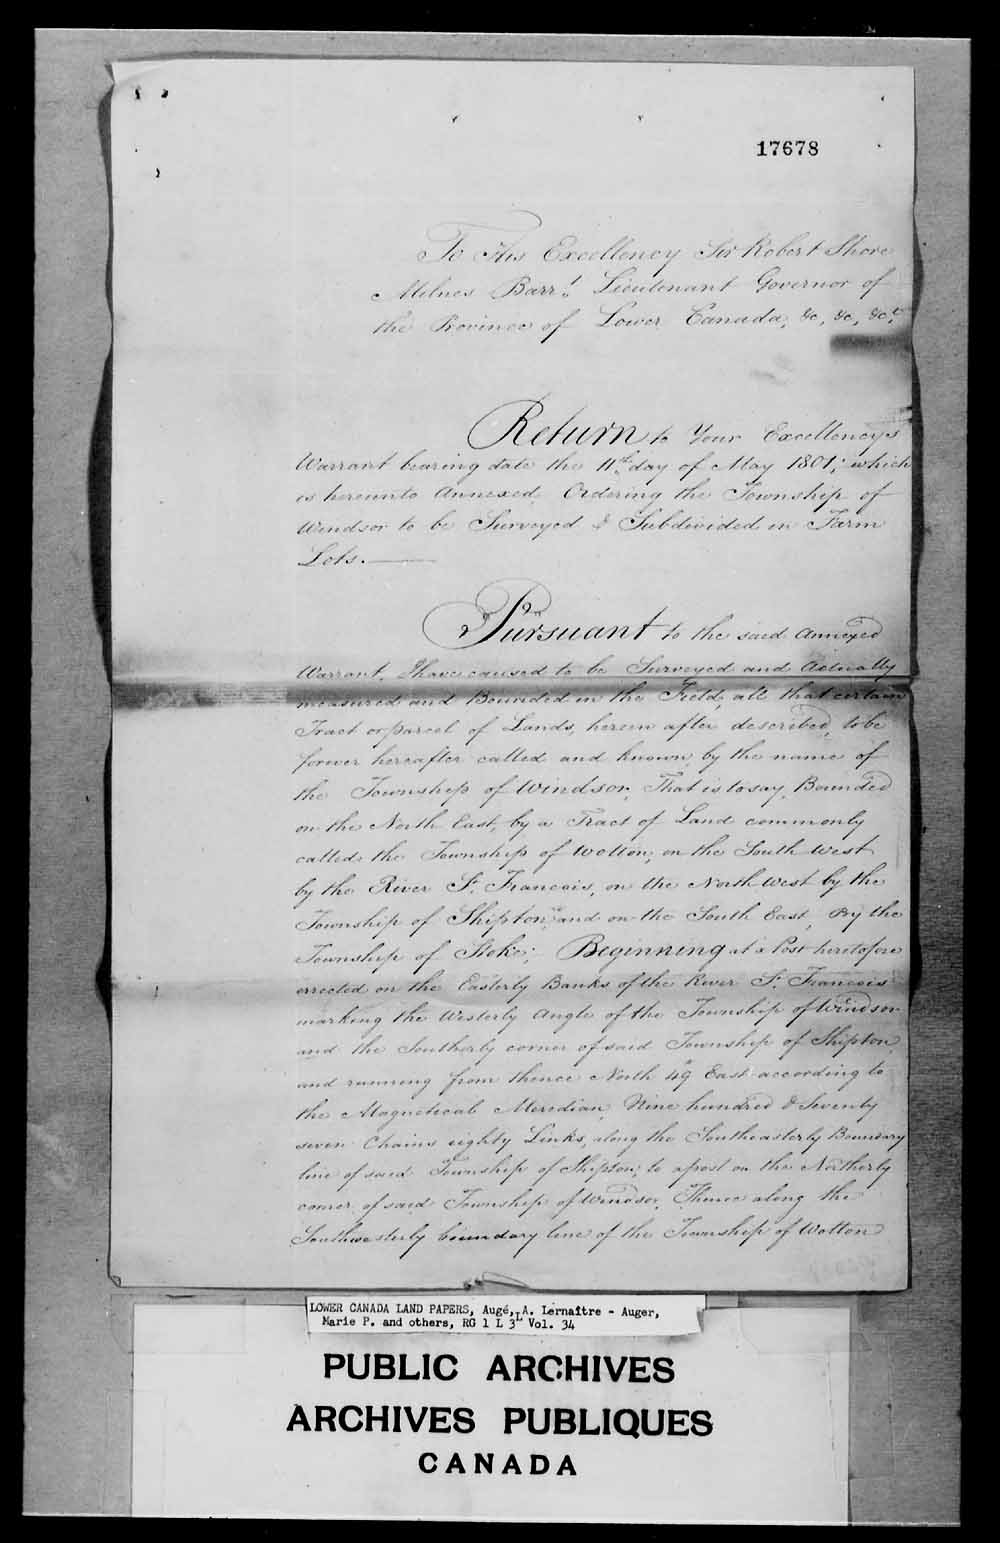 17678
To His Excellency Sir Robert Shore
Milnes Barrt. Lieutenant Governor of
the Province of Lower Canada, &c, &c, &ca.
Return to Your Excellencys
Warrant bearing date the 11th day of May 1801; which
is hereunto Annexed, Ordering the Township of
Windsor to be Surveyed & Subdivided in Farm
Lots.
Pursuant to the said Annexed
Warrant, I have caused to be Surveyed and Actually
measured and Bounded in the Field, all that certain
Tract or parcel of Lands, herein after described, to be
forever hereafter called and known by the name of
the Township of Windsor, That is to say, Bounded
on the North East, by a Tract of Land commonly
called the Township of Wotton, on the South West
by the River St. Francois, on the North West by the
Township of Shipton, and on the South East, By the
Township of Stoke; Beginning at a Post heretofore
errected on the Easterly Banks of the River St. Francois
marking the Westerly Angle of the Township of Windsor
and the Southerly corner of said Township of Shipton,
and running from thence North 49 East according to
the Magnetical Meridian, Nine hundred & Seventy
seven Chains eighty Links, along the Southeasterly Boundary
line of said Township of Shipton; to a post on the Northerly
corner of said Township of Windsor, Thence along the
Southwesterly boundary line of the Township of Wotton
LOWER CANADA LAND PAPERS, Augé, A. Lernaître - Auger,
Marie P. and others, RG 1 L 3L Vol. 34
PUBLIC ARCHIVES
ARCHIVES PUBLIQUES
CANADA